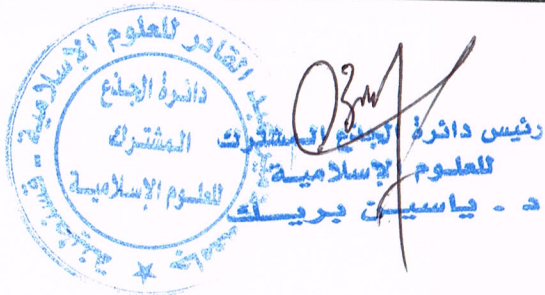 عبد القادر للعلوم الإسلامية - قسنطينة
جامعة
دائرة الجذع
المشترك
للعلوم الإسلامية
رئيس دائرة الجذع المشترك
للعلوم الإسلاميـة
د . ياسيـن بريـك